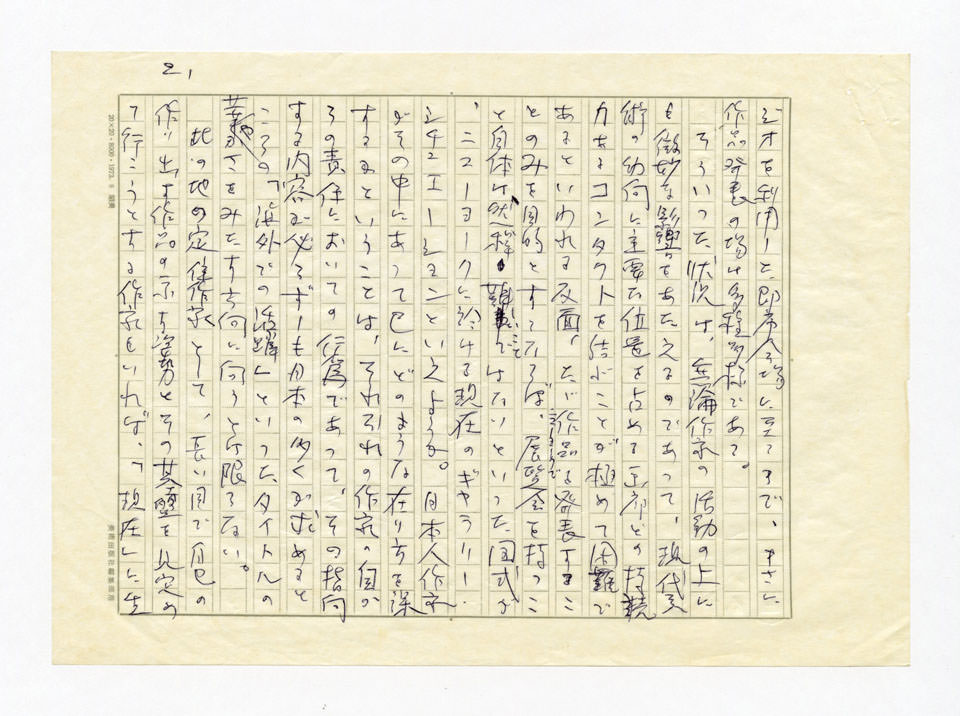 2,
ジオを利用した即売会場に至るまで、まさに
作品発表の場は多種多様である。
そういった状況は、無論作家の活動の上に
も微妙な影響をあたえるのであって、現代美
術の動向に主要な位置を占める画廊との持続
力あるコンタクトを結ぶことが極めて困難で
あるといわれる反面、ただ作品を発表するこ
とのみを目的とするならば、ニューヨークで展覧会を持つこ
と自体は然程難しいことではないといった図式が
、ニューヨークに於ける現在のギャラリー・
シチュエーションといえようか。日本人作家
がその中にあって己にどのような在り方を課
するかということは、それぞれの作家の自か
らの責任においての行為であって、その指向
する内容が必らずしも日本の多くが求めると
ころの「海外での活躍」といったタイトルの
華やかさをみたす方向に向うとは限らない。
此の地の定住作家として、長い目で自己の
作り出す作品の示す姿勢とその基盤を見定め
て行こうとする作家もいれば、「現在」に生
20×20・